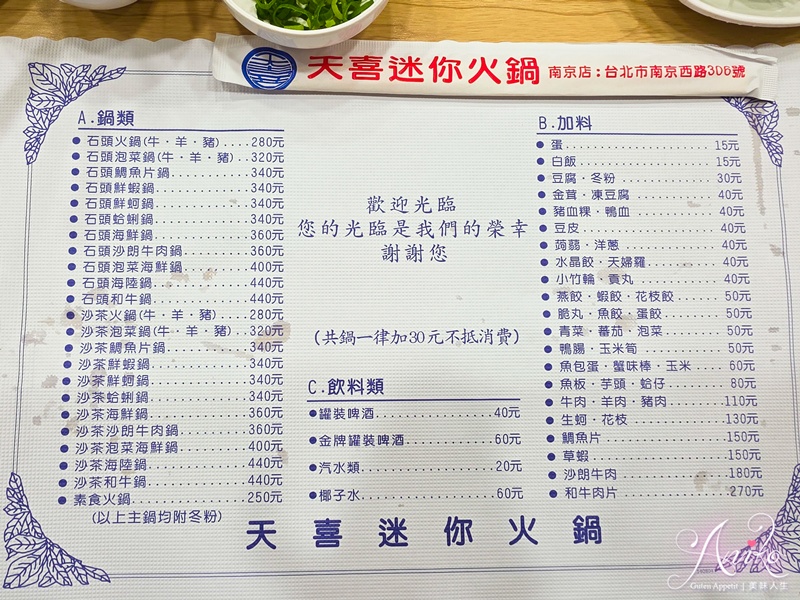 天喜迷你火鍋 南京店:台北市南京西路306號
A.鍋類
●石頭火鍋(牛・羊・豬)....280元
●石頭泡菜鍋(牛・羊・豬)..320元
●石頭鯛魚片鍋............340元
●石頭鮮蝦鍋..............340元
●石頭鮮蚵鍋..............340元
●石頭蛤蜊鍋..............340元
●石頭海鮮鍋..............360元
●石頭沙朗牛肉鍋..........360元
●石頭泡菜海鮮鍋..........400元
●石頭海陸鍋..............440元
●石頭和牛鍋..............440元
●沙茶火鍋(牛・羊・豬)....280元
●沙茶泡菜鍋(牛・羊・豬)..320元
●沙茶鯛魚片鍋............340元
●沙茶鮮蝦鍋..............340元
●沙茶鮮蚵鍋..............340元
●沙茶蛤蜊鍋..............340元
●沙茶海鮮鍋..............360元
●沙茶沙朗牛肉鍋..........360元
●沙茶泡菜海鮮鍋..........400元
●沙茶海陸鍋..............440元
●沙茶和牛鍋..............440元
●素食火鍋................250元
(以上主鍋均附冬粉)
歡迎光臨
您的光臨是我們的榮幸
謝謝您
(共鍋一律加30元不抵消費)
C.飲料類
●罐裝啤酒................40元
●金牌罐裝啤酒............60元
●汽水類..................20元
●椰子水..................60元
B.加料
●蛋......................15元
●白飯....................15元
●豆腐・冬粉..............30元
●金茸・凍豆腐............40元
●豬血粿・鴨血............40元
●豆皮....................40元
●蒟蒻・洋蔥..............40元
●水晶餃・天婦羅..........40元
●小竹輪・貢丸............40元
●燕餃・蝦餃・花枝餃......50元
●脆丸・魚餃・蛋餃........50元
●青菜・蕃茄・泡菜........50元
●鴨腸・玉米筍............50元
●魚包蛋・蟹味棒・玉米....60元
●魚板・芋頭・蛤仔........80元
●牛肉・羊肉・豬肉........110元
●生蚵・花枝..............130元
●鯛魚片..................150元
●草蝦....................150元
●沙朗牛肉................180元
●和牛肉片................270元
天喜迷你火鍋
Guten Appetit | 美味人生